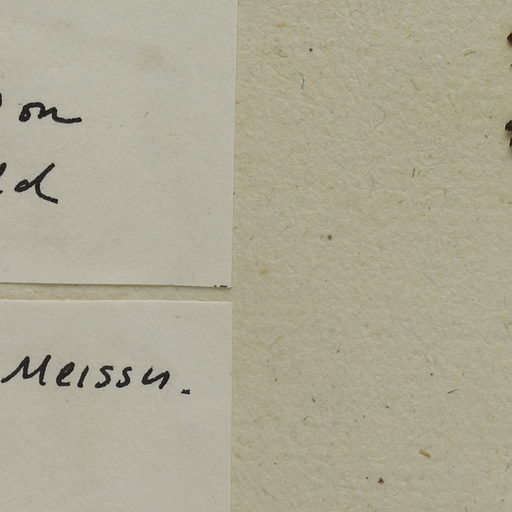 on
Meissn.